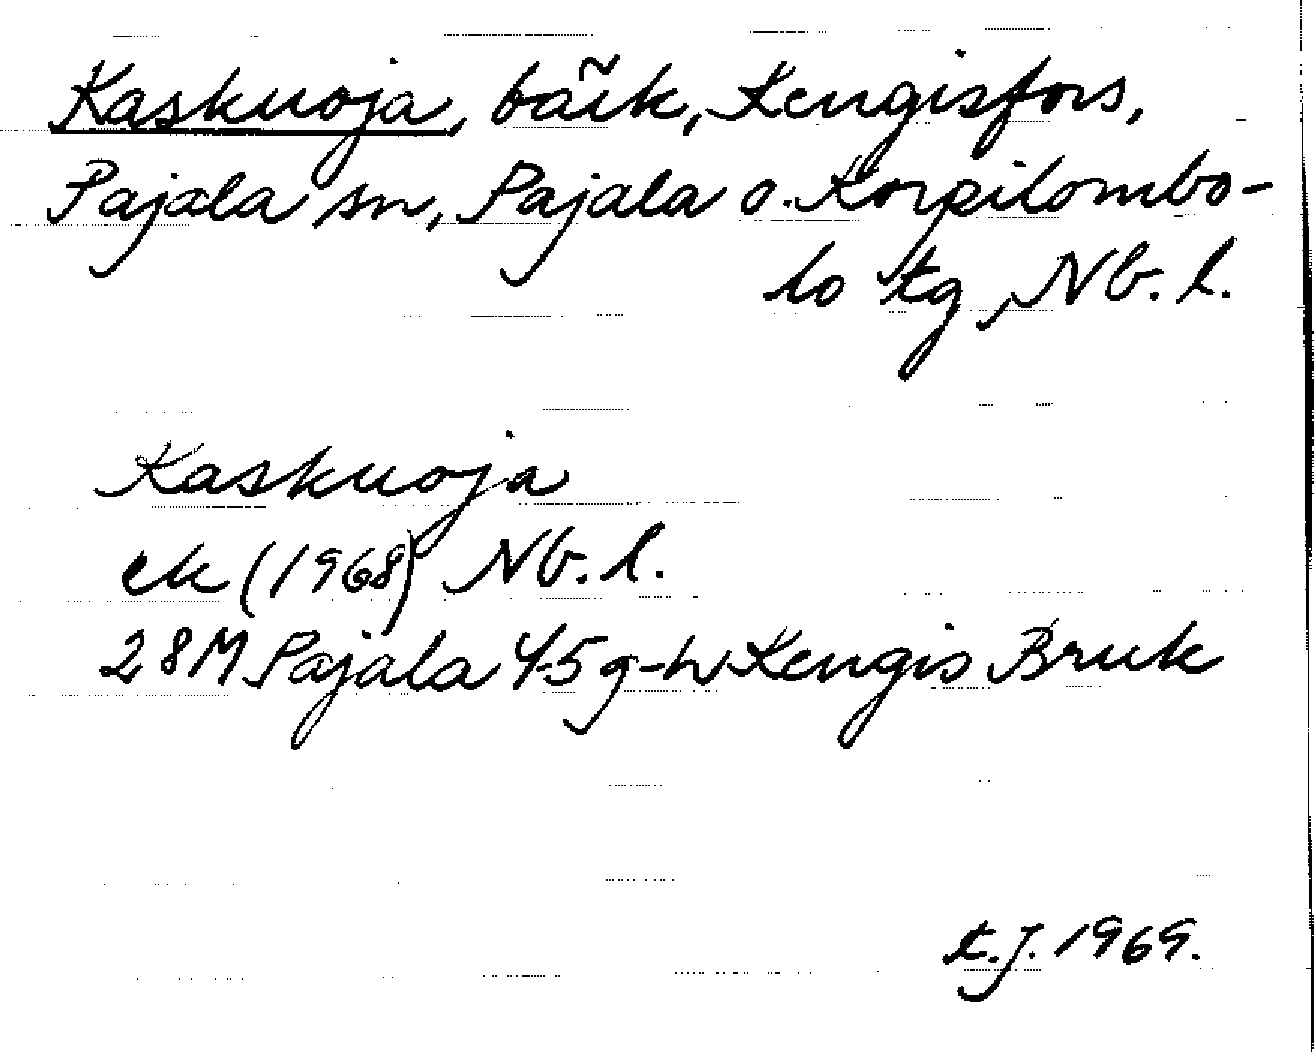 Kaskuoja, bäck, Kengisfors,
Pajala sn, Pajala o. Korpilombo-
lo tg, Nb. l.
Kaskuoja
ek (1968) Nb. l.
28M Pajala 4-5 g-h Kengis Bruk
K.J. 1969.